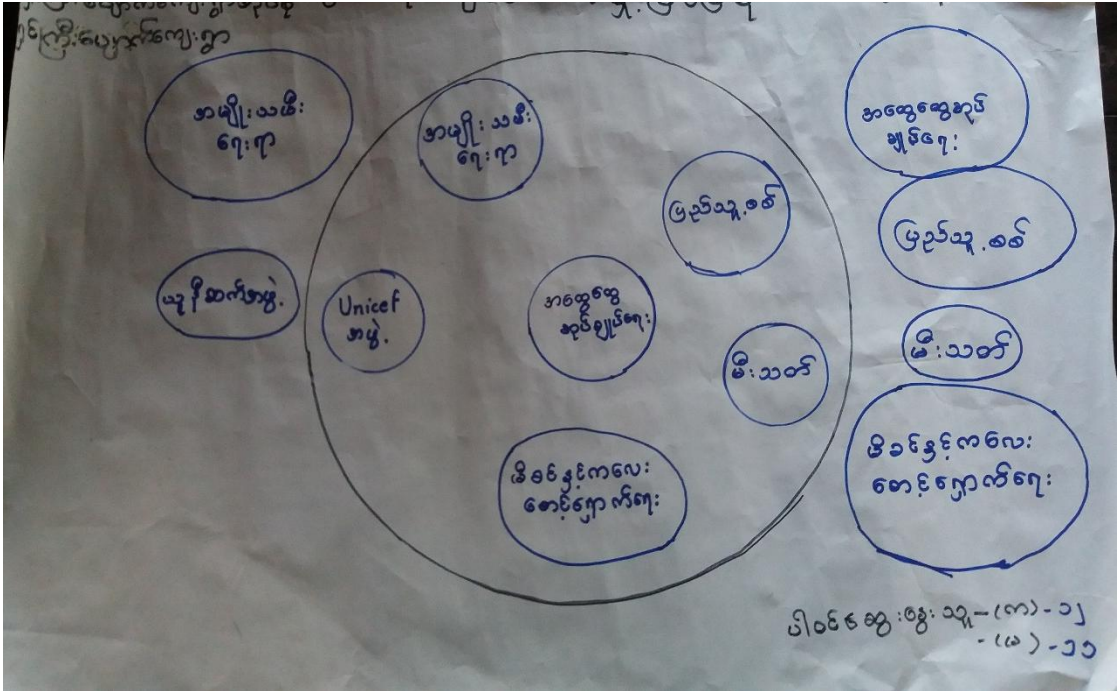 အမျိုးသမီး
ရေးရာ
အမျိုးသမီး
ရေးရာ
အထွေထွေအုပ်
ချုပ်ရေး
ပြည်သူ့စစ်
ပြည်သူ့စစ်
ယူနီဆက်အဖွဲ့
Unicef
အဖွဲ့
အထွေထွေ
အုပ်ချုပ်ရေး
မီးသတ်
မီးသတ်
မိခင်နှင့်ကလေး
စောင့်ရှောက်ရေး
မိခင်နှင့်ကလေး
စောင့်ရှောက်ရေး
ပါဝင်ဆွေးနွေးသူ-(ကျ)-၁၂
-(မ)-၁၁